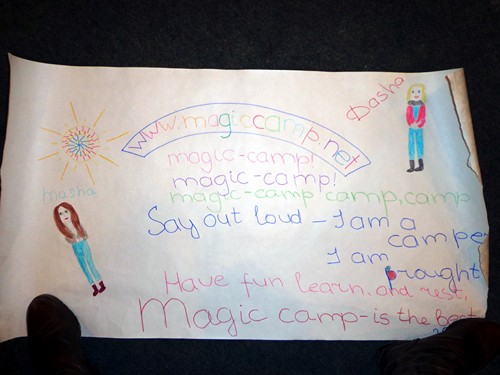 Dasha
www.magiccamp.net
magic-camp!
magic-camp!
magic-camp camp, camp
masha
Say out loud - I am a
campe
I am
prought
Have fun learn. and rest,
Magic camp - is the Best